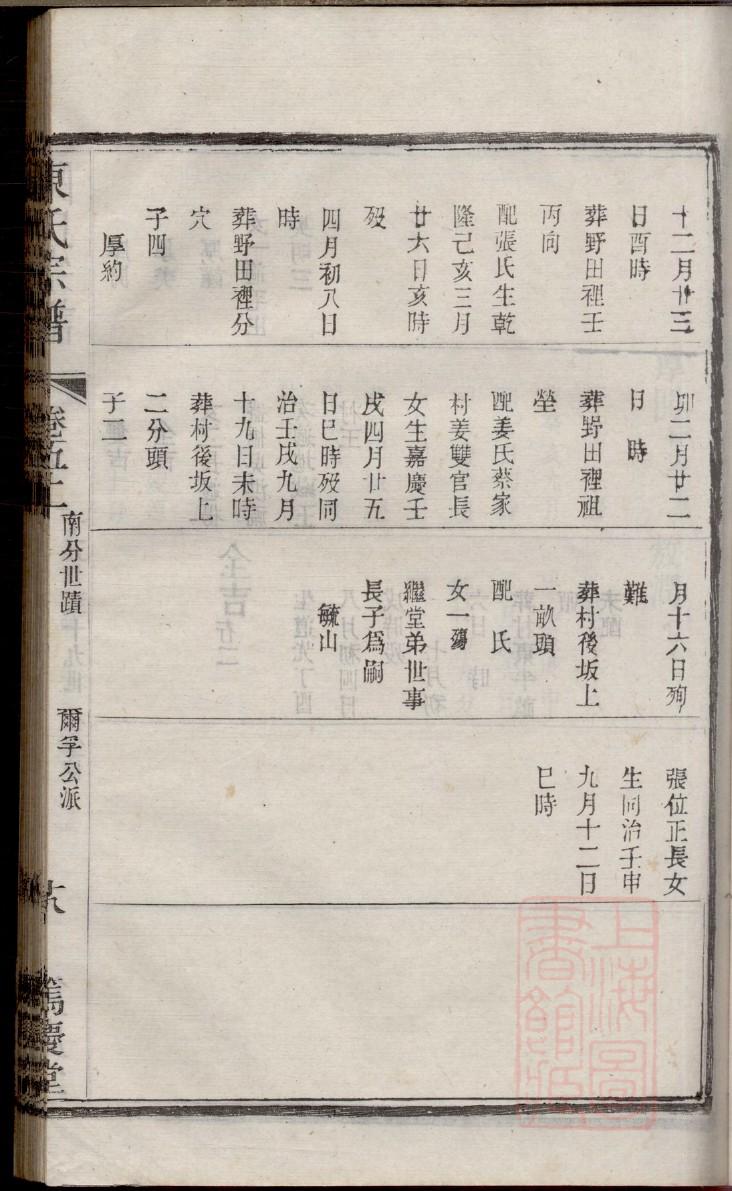 十二月廿三
日酉時
葬野田裡壬
丙向
配張氏生乾
隆己亥三月
廿六日亥時
歿
四月初八日
時
葬野田裡分
穴
子四
厚約
卯二月廿二
日 時
葬野田裡祖
塋
配姜氏蔡家
村姜雙官長
女生嘉慶壬
戌四月廿五
日巳時歿同
治壬戌九月
十九日未時
葬村後坂上
二分頭
子二
月十六日殉
難
葬村後坂上
一畝頭
配 氏
女一殤
繼堂弟世事
長子爲嗣
毓山
張位正長女
生同治壬申
九月十二日
巳時
氏宗譜
卷五
南分世蹟
爾孚公派
篤慶堂
上海圖書館藏